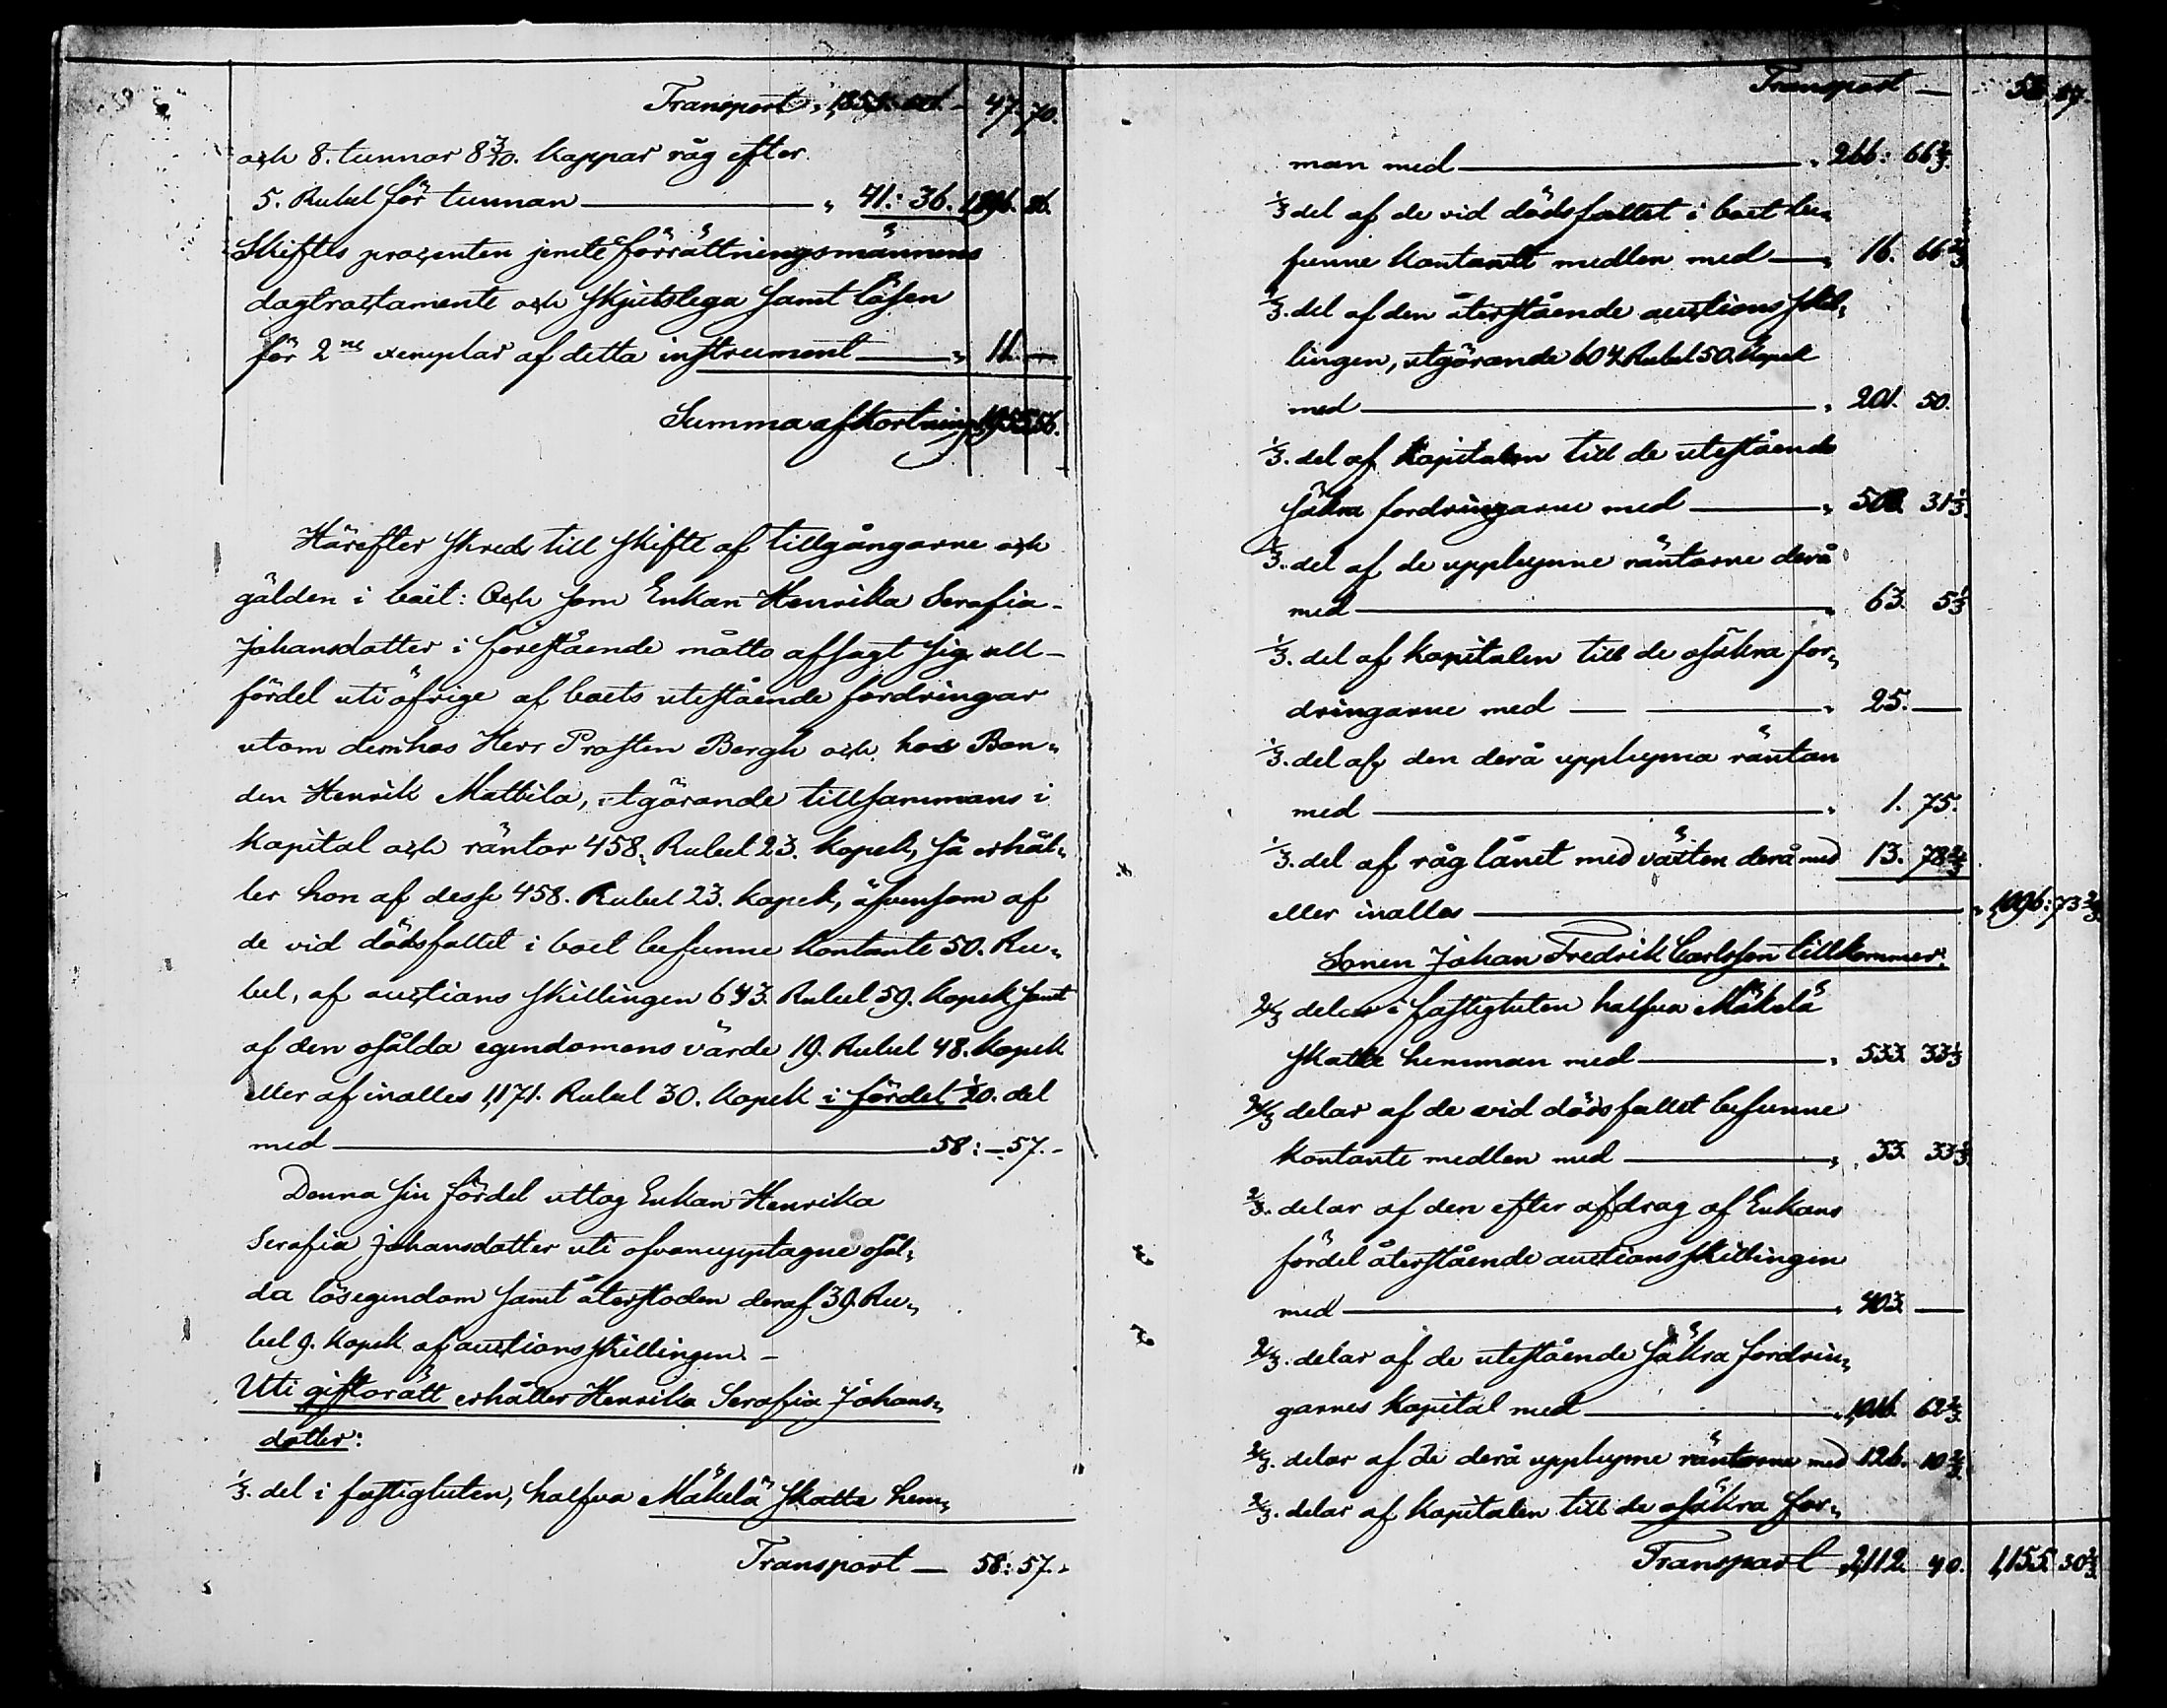 Transport „ 1,855: 47. 70.
och 8. tunnor 8 3/10. kappar råg efter
5. Rubel för tunnan — „ 41: 36. 1896. 86.
Skiftes procenten jemte förrättningsmännens
dagtractamente och skjutslega samt lösen
för 2ne exemplar af detta instrument — „ 11. —
Summa afkortning 1955. 56.
Härefter skreds till skifte af tillgångarne och
gälden i boet: Och som Enkan Henrika Serafia
Johansdotter i förestående måtto afsagt sig all
fördel uti öfrige af boets utestående fordringar
utom dem hos Herr Prosten Bergh och hos Bon„
den Henrik Mattila, utgörande tillsammans i
kapital och räntor 458. Rubel 23. kopek, så erhål„
ler hon af desse 458. Rubel 23. kopek, äfvensom af
de vid dödsfallet i boet befunne kontante 50. Ru„
bel, af auctions skillingen 643. Rubel 59. kopek samt
af den osålda egendomens värde 19. Rubel 48. kopek
eller af inalles 1,171. Rubel 30. kopek i fördel 1/20. del
med — 58: — 57. -
Denna sin fördel uttog Enkan Henrika
Serafia Johansdotter uti ofvanupptagne osål„
da lösegendom samt återstoden deraf 39. Ru„
bel 9. kopek af auctions skillingen. -
Uti giftorätt erhåller Henrika Serafia Johans„
dotter:
1/3. del i fastigheten, halfva Mäkelä skatte hem„
Transport — 58: 57. -
Transport — 58. 57.
man med — „ 266: 66 2/3.
1/3 del af de vid dödsfallet i boet be„
funne kontante medlen med — „ 16. 66 2/3
1/3. del af den återstående auctions skil„
lingen, utgörande 604. Rubel 50. kopek
med — „ 201. 50.
1/3. del af kapitalen till de utestående
säkra fordringarne med — „ 508. 31 1/3.
1/3. del af de upplupne räntorne derå
med — „ 63. 5 1/3
1/3. del af kapitalen till de osäkra for„
dringarne med — „ 25. —
1/3. del af den derå upplupna räntan
med — „ 1. 75.
1/3. del af råg lånet med växten derå med 13. 78 2/3
eller inalles — „ 1,096: 73 2/3
Sonen Johan Fredrik Carlsson tillkommer:
2/3 delar i fastigheten halfva Mäkelä
skatte hemman med — „ 533. 33 1/3
2/3 delar af de vid dödsfallet befunne
kontante medlen med — „ 33. 33 1/3
2/3. delar af den efter afdrag af Enkans
fördel återstående auctions skillingen
med — „ 403. —
2/3. delar af de utestående säkra fordrin„
garnes kapital med — „ 1,016. 62 2/3.
2/3. delar af de derå upplupne räntorne med 126. 10 2/3
2/3. delar af kapitalen till de osäkra for„
Transport 2,112. 40. 1,155. 30 2/3.